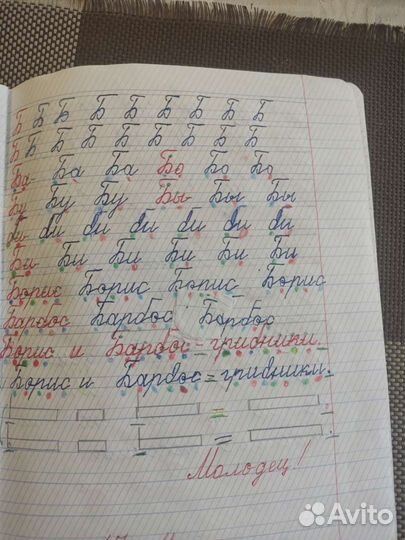 Б Б Б Б Б Б Б Б Б
Б Б Б Б Б Б Б Б Б
Ба Ба Ба Бо Бо Бо
Бу Бу Бу Бы Бы Бы
би би би би би би би
Би Би Би Би Би Би
Борис Борис Борис Борис
Барбос Барбос Барбос
Борис и Барбос - грибники.
Борис и Барбос - грибники.
Молодец!
Avito